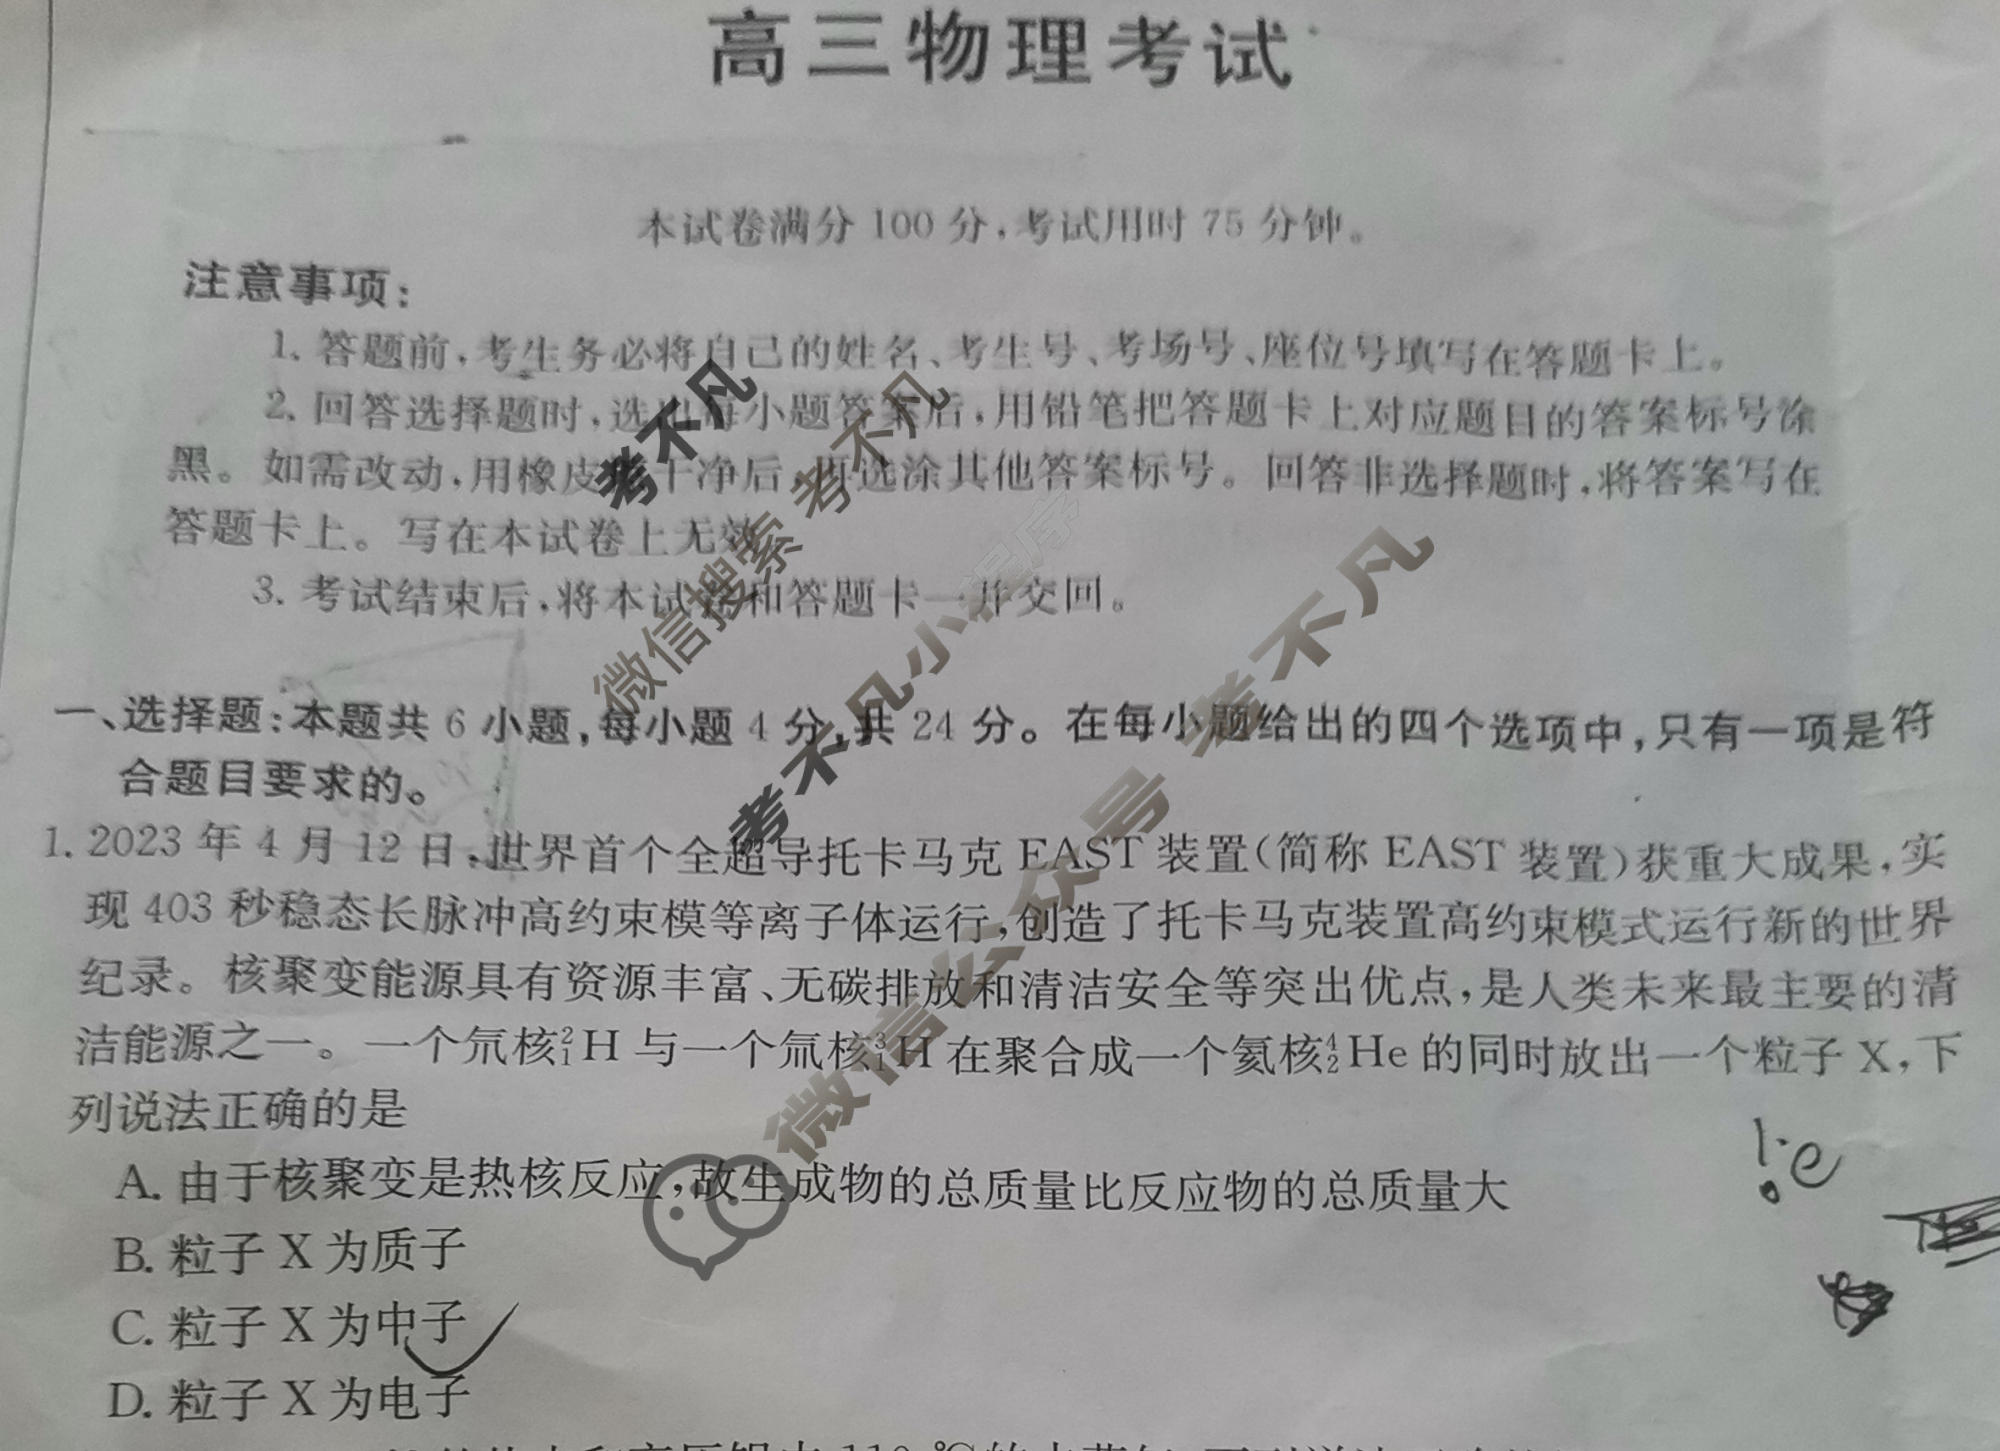 高三物理考试
本试卷满分 100 分,考试用时 75 分钟。
注意事项:
1. 答题前,考生务必将自己的姓名、考生号、考场号、座位号填写在答题卡上。
2. 回答选择题时,选出每小题答案后,用铅笔把答题卡上对应题目的答案标号涂
黑。如需改动,用橡皮擦干净后,再选涂其他答案标号。回答非选择题时,将答案写在
答题卡上。写在本试卷上无效
3. 考试结束后,将本试卷和答题卡一并交回。
一、选择题:本题共 6 小题,每小题 4 分,共 24 分。在每小题给出的四个选项中,只有一项是符
合题目要求的。
1. 2023 年 4 月 12 日,世界首个全超导托卡马克 EAST 装置(简称 EAST 装置)获重大成果,实
现 403 秒稳态长脉冲高约束模等离子体运行,创造了托卡马克装置高约束模式运行新的世界
纪录。核聚变能源具有资源丰富、无碳排放和清洁安全等突出优点,是人类未来最主要的清
洁能源之一。一个氘核²₁H 与一个氚核³₁H 在聚合成一个氦核⁴₂He 的同时放出一个粒子 X,下
列说法正确的是
A. 由于核聚变是热核反应,故生成物的总质量比反应物的总质量大
B. 粒子 X 为质子
C. 粒子 X 为中子
D. 粒子 X 为电子
考不凡
微信搜索 考不凡
考不凡小程序
微信公众号 考不凡